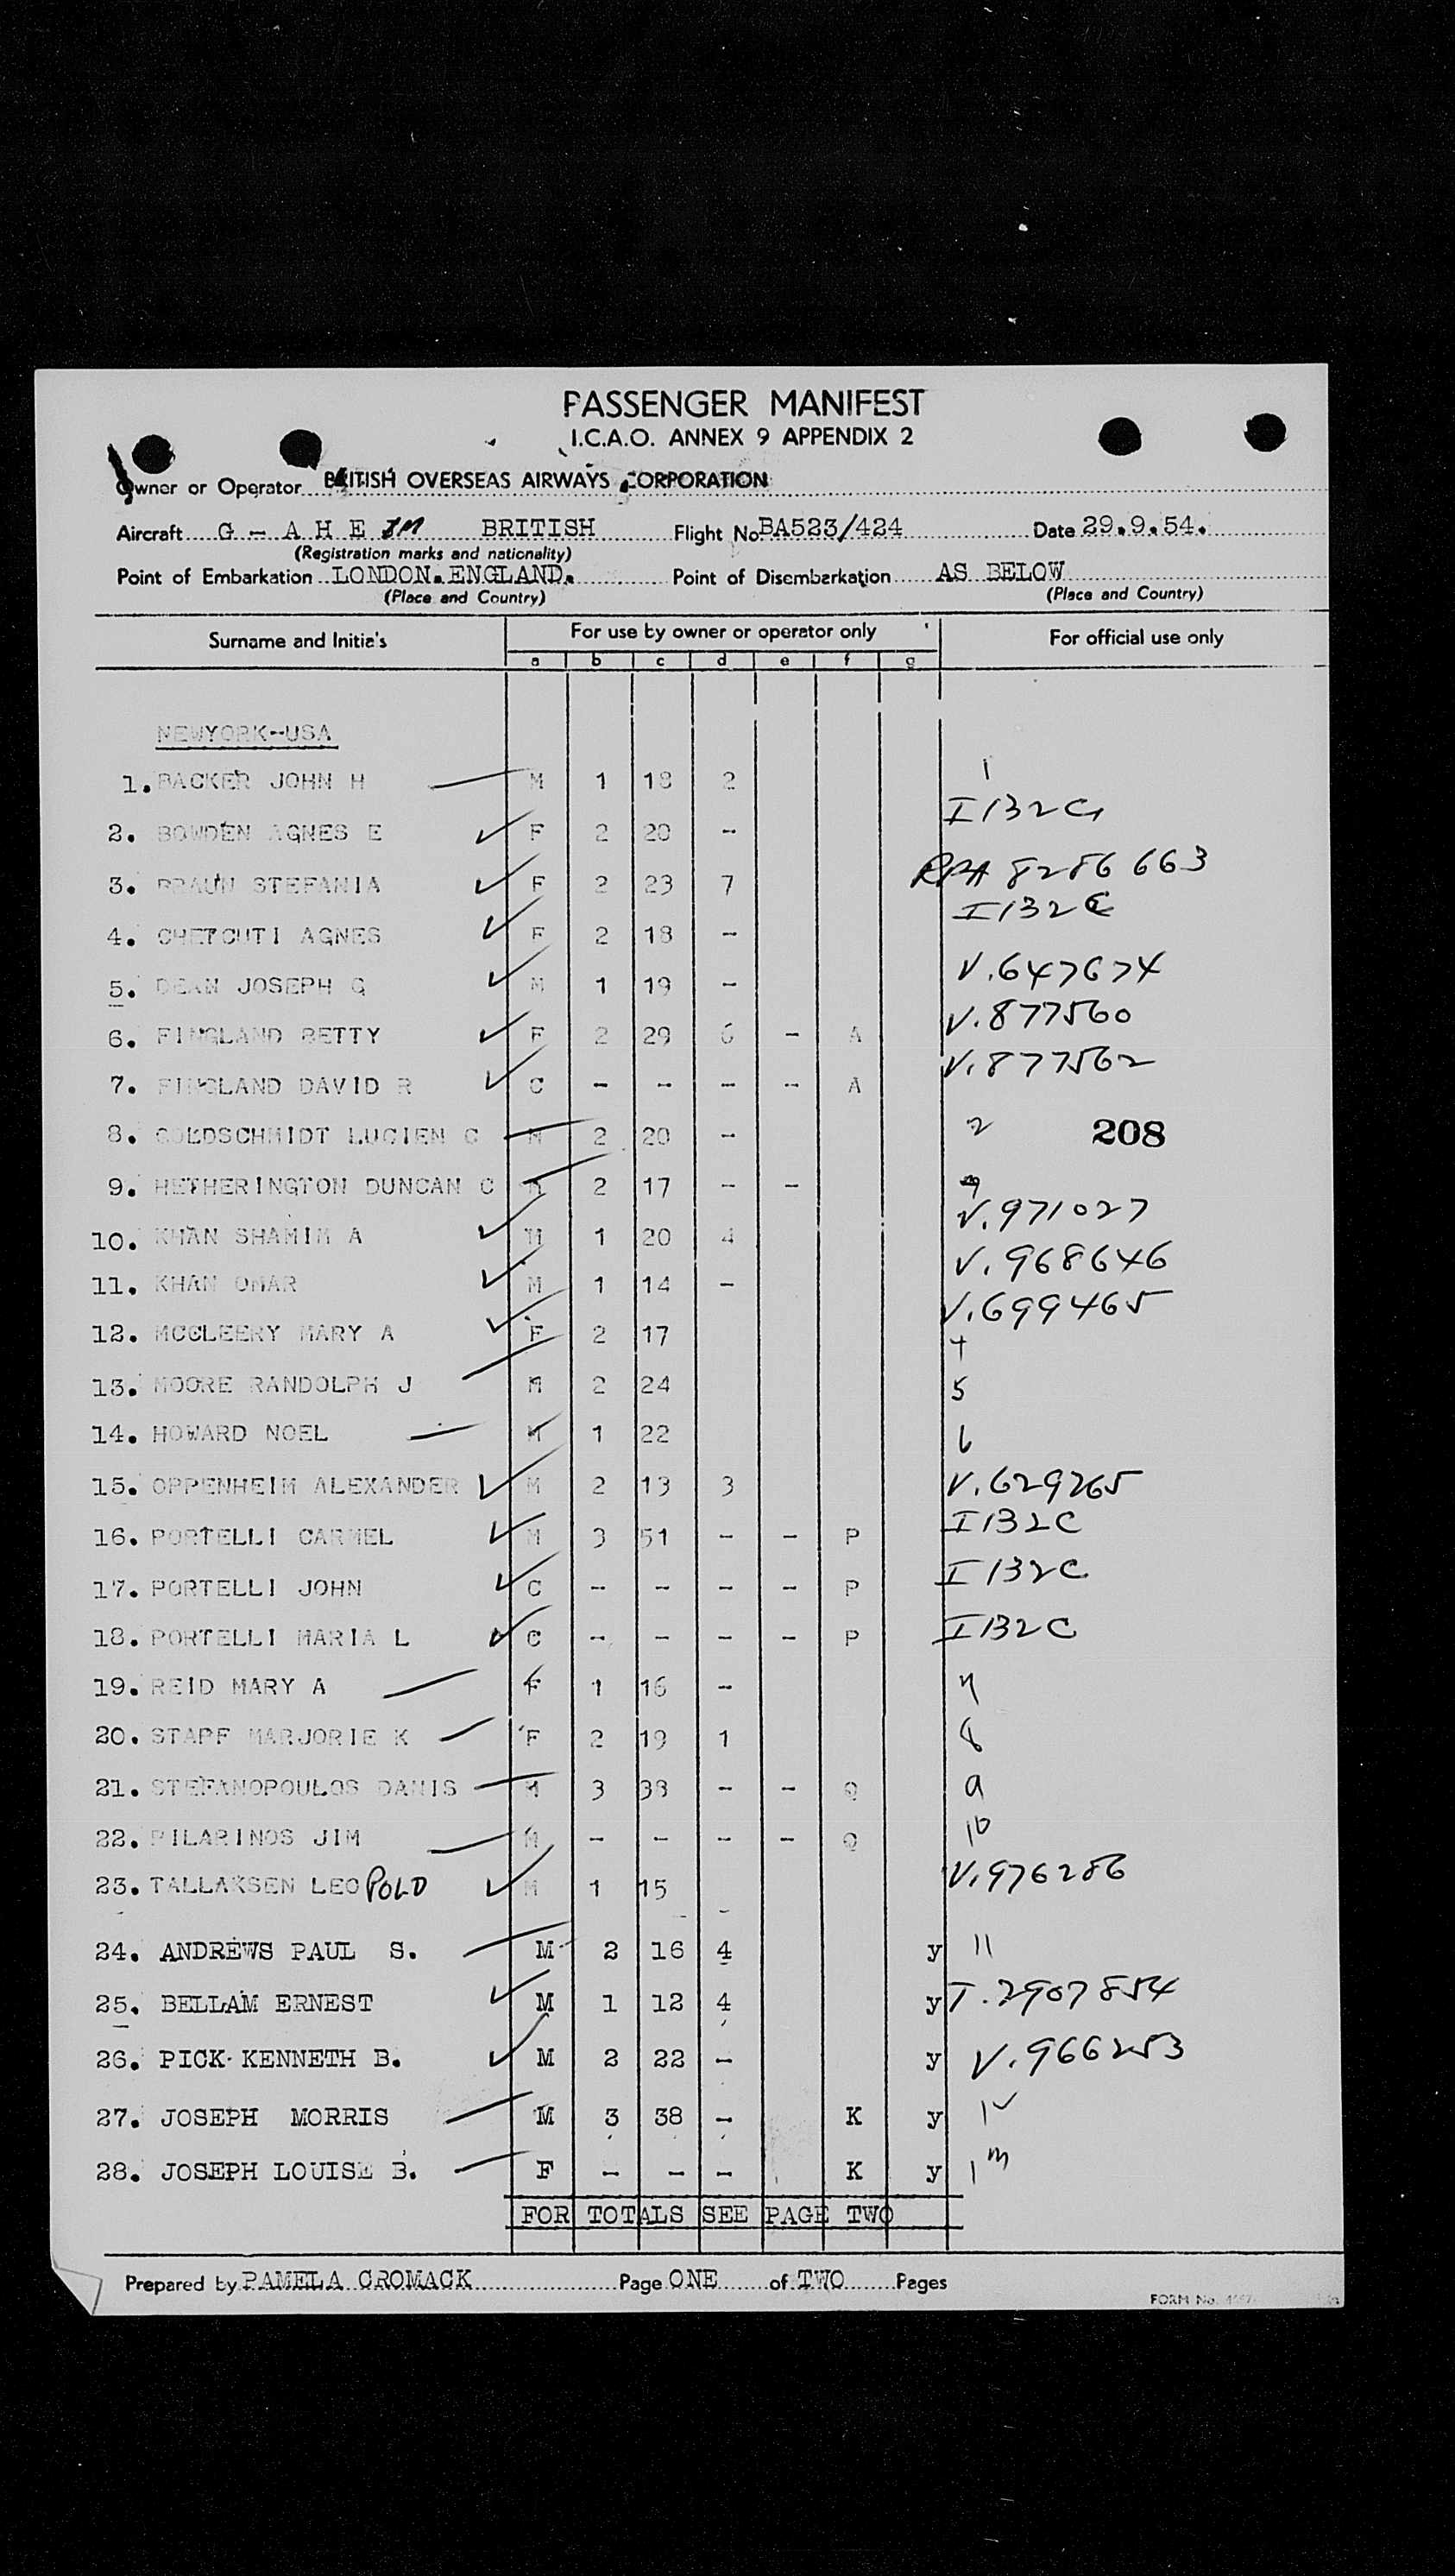 PASSENGER MANIFEST
I.C.A.O. ANNEX 9 APPENDIX 2
Owner or Operator BRITISH OVERSEAS AIRWAYS CORPORATION
Aircraft G - A H E JM BRITISH Flight No. BA523/424 Date 29.9.54.
(Registration marks and nationality)
Point of Embarkation LONDON. ENGLAND. Point of Disembarkation AS BELOW
(Place and Country) (Place and Country)
Surname and Initials For use by owner or operator only For official use only
a b c d e f g
NEWYORK-USA
1. BACKER JOHN H M 1 18 2 1
2. BOWDEN AGNES E F 2 20 - I132C
3. BRAUN STEFANIA F 2 23 7 RPA 8286663
4. CHETCUTI AGNES F 2 18 - I132C
5. DEAN JOSEPH G M 1 19 - V.647674
6. FINGLAND BETTY F 2 29 6 - A V.877560
7. FINGLAND DAVID R C - - - - A V.877562
8. GOLDSCHMIDT LUCIEN C M 2 20 - 2 208
9. HETHERINGTON DUNCAN C M 2 17 - -
10. KHAN SHAMIM A M 1 20 4 V.971027
11. KHAN OMAR M 1 14 - V.968646
12. MCCLEERY MARY A F 2 17 V.699465
4
13. MOORE RANDOLPH J M 2 24 5
14. HOWARD NOEL M 1 22 6
15. OPPENHEIM ALEXANDER M 2 13 3 V.629265
16. PORTELLI CARMEL M 3 51 - - P I132C
17. PORTELLI JOHN C - - - - P I132C
18. PORTELLI MARIA L C - - - - P I132C
19. REID MARY A F 1 16 - 7
20. STAPF MARJORIE K F 2 19 1 8
21. STEFANOPOULOS DANIS M 3 38 - - Q 9
22. PILARINOS JIM M - - - - Q 10
23. TALLAKSEN LEOPOLD M 1 15 - V.976286
24. ANDREWS PAUL S. M 2 16 4 y 11
25. BELLAM ERNEST M 1 12 4 y T.2907854
26. PICK KENNETH B. M 2 22 - y V.966253
27. JOSEPH MORRIS M 3 38 - K y 12
28. JOSEPH LOUISE B. F - - - K y 13
FOR TOTALS SEE PAGE TWO
Prepared by PAMELA CROMACK Page ONE of TWO Pages
FORM No.